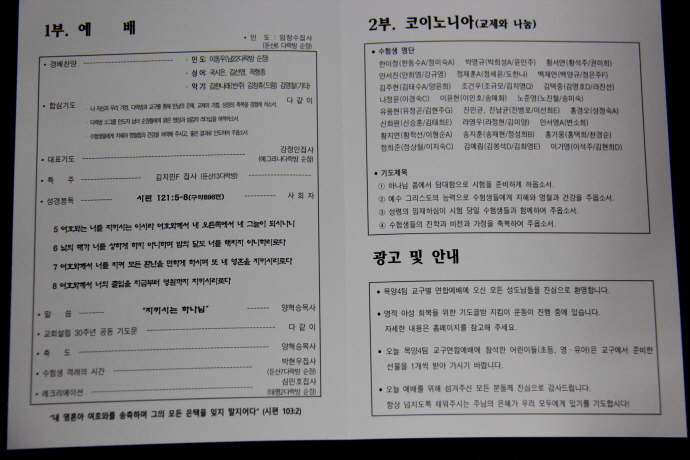 1부. 예 배
• 인 도 : 임창수집사
(둔산6 다락방 순장)
• 경배찬양 - 인 도: 이동우(남2다락방 순장)
- 싱 어: 국시은, 김선영, 곽형종
- 악 기: 김한나래(반주) 김창휴(드럼) 김영철(기타)
• 합심기도 다 같 이
• 대표기도 강정인집사
(예그리나다락방 순장)
• 특 주 김지민F 집사 (둔산13다락방)
• 성경봉독 시편 121:5-8(구약896면) 사 회 자
5 여호와는 너를 지키시는 이시라 여호와께서 네 오른쪽에서 네 그늘이 되시나니
6 낮의 해가 너를 상하게 하지 아니하며 밤의 달도 너를 해치지 아니하리로다
7 여호와께서 너를 지켜 모든 환난을 면하게 하시며 또 네 영혼을 지키시리로다
8 여호와께서 너의 출입을 지금부터 영원까지 지키시리로다
• 말 씀 "지키시는 하나님" 양혁승목사
• 교회설립 30주년 공동 기도문 다 같 이
• 축 도 양혁승목사
• 수험생 격려의 시간 박현우집사
(둔산7다락방 순장)
• 레크리에이션 심민호집사
(태평2다락방 순장)
"내 영혼아 여호와를 송축하며 그의 모든 은택을 잊지 말지어다" (시편 103:2)
2부. 코이노니아(교제와 나눔)
• 수험생 명단
한이정(한동수A/정미숙A) 박영규(박희성A/윤인주) 황서연(황석주/권미희)
안서진(안희영/강규영) 정재훈A(정세윤/도한나) 백채언(백영규/정은주F)
김주현(김태수A/양윤희) 조건우(조규모/김지영Q) 김택중(김영호D/라진선)
나정윤(이경숙C) 이윤현(이민호/송매화) 노준영(노진철/송미숙)
유용현(유정곤/김현주G) 진민균, 진남균(진병로/이선희E) 홍경오(성정숙A)
신화원(신승훈/김태희E) 라영우(라정현/김미양) 안서영A(변소희)
황지연(황학선/이형순A) 송지훈(송재현/정성희B) 홍기웅(홍택희/현경순)
정희준(정상철/이지숙C) 김예림(김봉석D/김화영E) 이가영(이석주/김현희D)
• 기도제목
① 하나님 품에서 담대함으로 시험을 준비하게 하옵소서.
② 예수 그리스도의 능력으로 수험생들에게 지혜와 명철과 건강을 주옵소서.
③ 성령의 임재하심이 시험 당일 수험생들과 함께하여 주옵소서.
④ 수험생들의 진학과 비전과 가정을 축복하여 주옵소서.
광고 및 안내
• 목양4팀 교구별 연합예배에 오신 모든 성도님들을 진심으로 환영합니다.
• 영적 야성 회복을 위한 기도골방 지킴이 운동이 진행 중에 있습니다.
자세한 내용은 홈페이지를 참고해 주세요.
• 오늘 목양4팀 교구연합예배에 참석한 어린이들(초등, 영·유아)은 교구에서 준비한
선물을 1개씩 받아 가시기 바랍니다.
• 오늘 예배를 위해 섬겨주신 모든 분들께 진심으로 감사드립니다.
항상 넘치도록 채워주시는 주님의 은혜가 우리 모두에게 있기를 기도합시다!